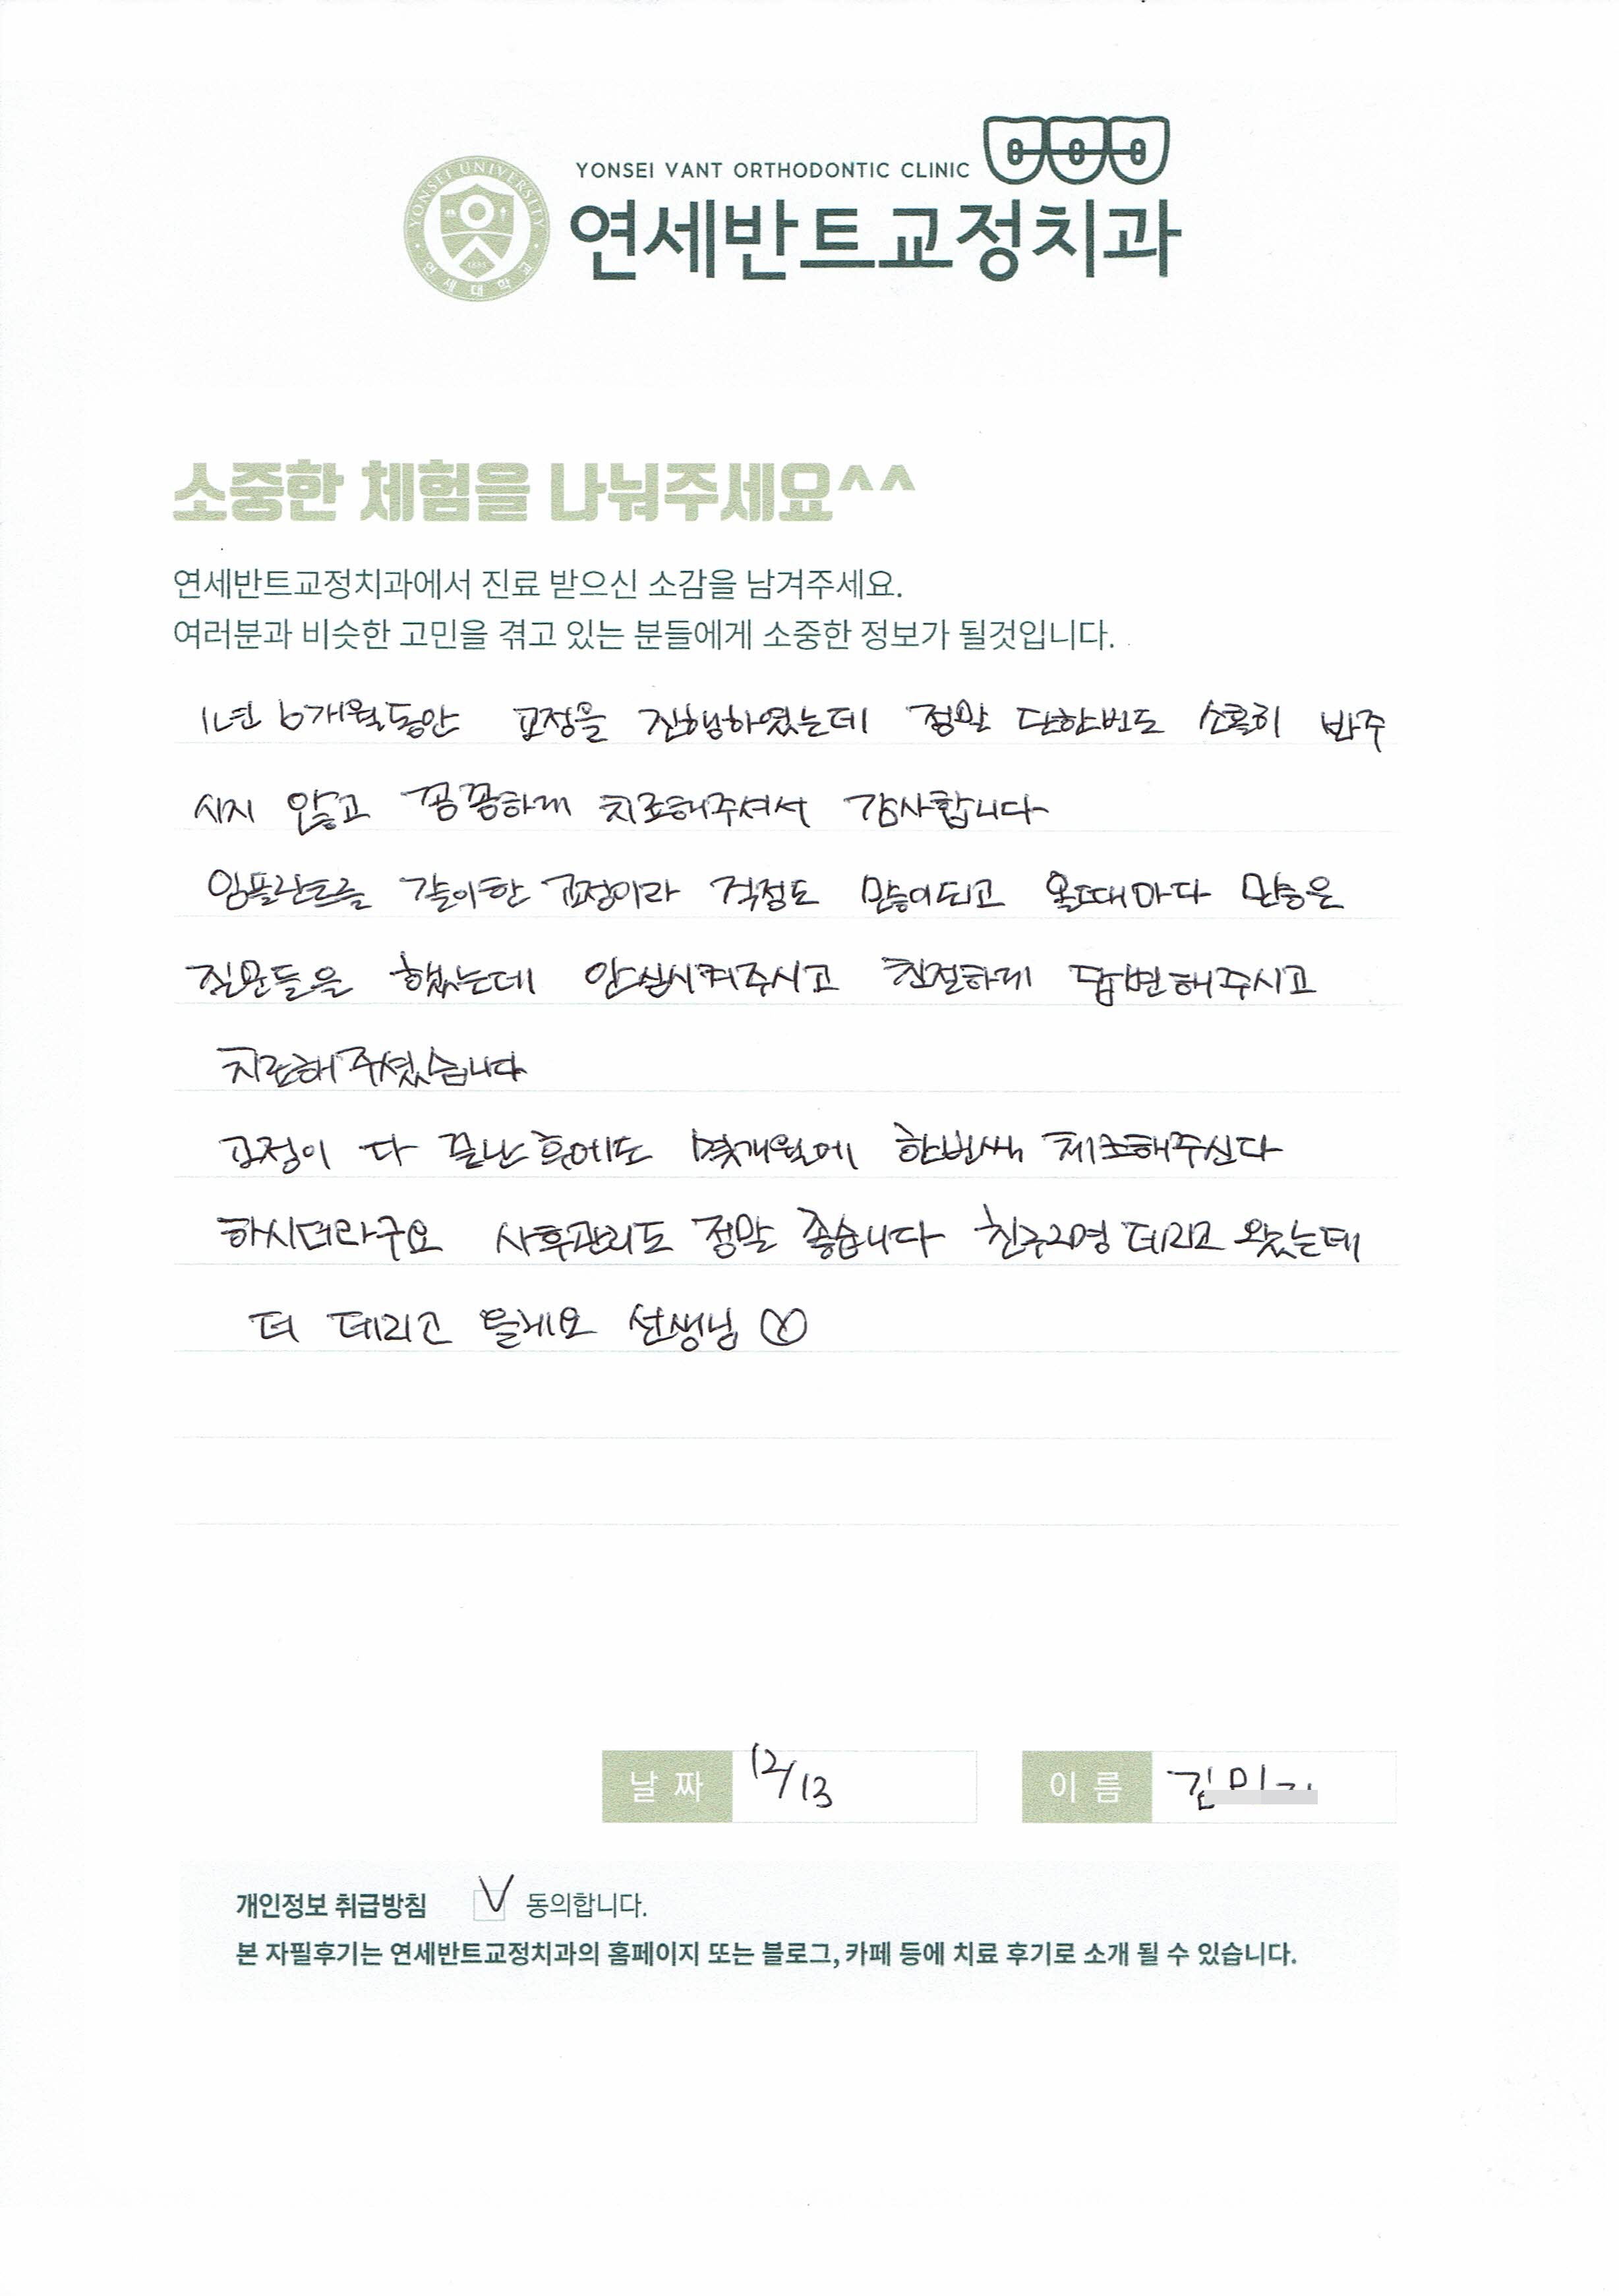 YONSEI VANT ORTHODONTIC CLINIC
YONSEI UNIVERSITY
연세대학교
연세반트교정치과
소중한 체험을 나눠주세요^^
연세반트교정치과에서 진료 받으신 소감을 남겨주세요.
여러분과 비슷한 고민을 겪고 있는 분들에게 소중한 정보가 될것입니다.
1년 6개월동안 교정을 진행하였는데 정말 단한번도 소홀히 봐주
시지 않고 꼼꼼하게 치료해주셔서 감사합니다
임플란트를 같이한 교정이라 걱정도 많이되고 올때마다 많은
질문들을 했는데 안심시켜주시고 친절하게 답변해주시고
치료해주셨습니다
교정이 다 끝난후에도 몇개월에 한번씩 체크해주신다
하시더라구요 사후관리도 정말 좋습니다 친구2명 데리고 왔는데
더 데리고 올게요 선생님
날짜 12/13 이름 김
개인정보 취급방침 V 동의합니다.
본 자필후기는 연세반트교정치과의 홈페이지 또는 블로그, 카페 등에 치료 후기로 소개 될 수 있습니다.